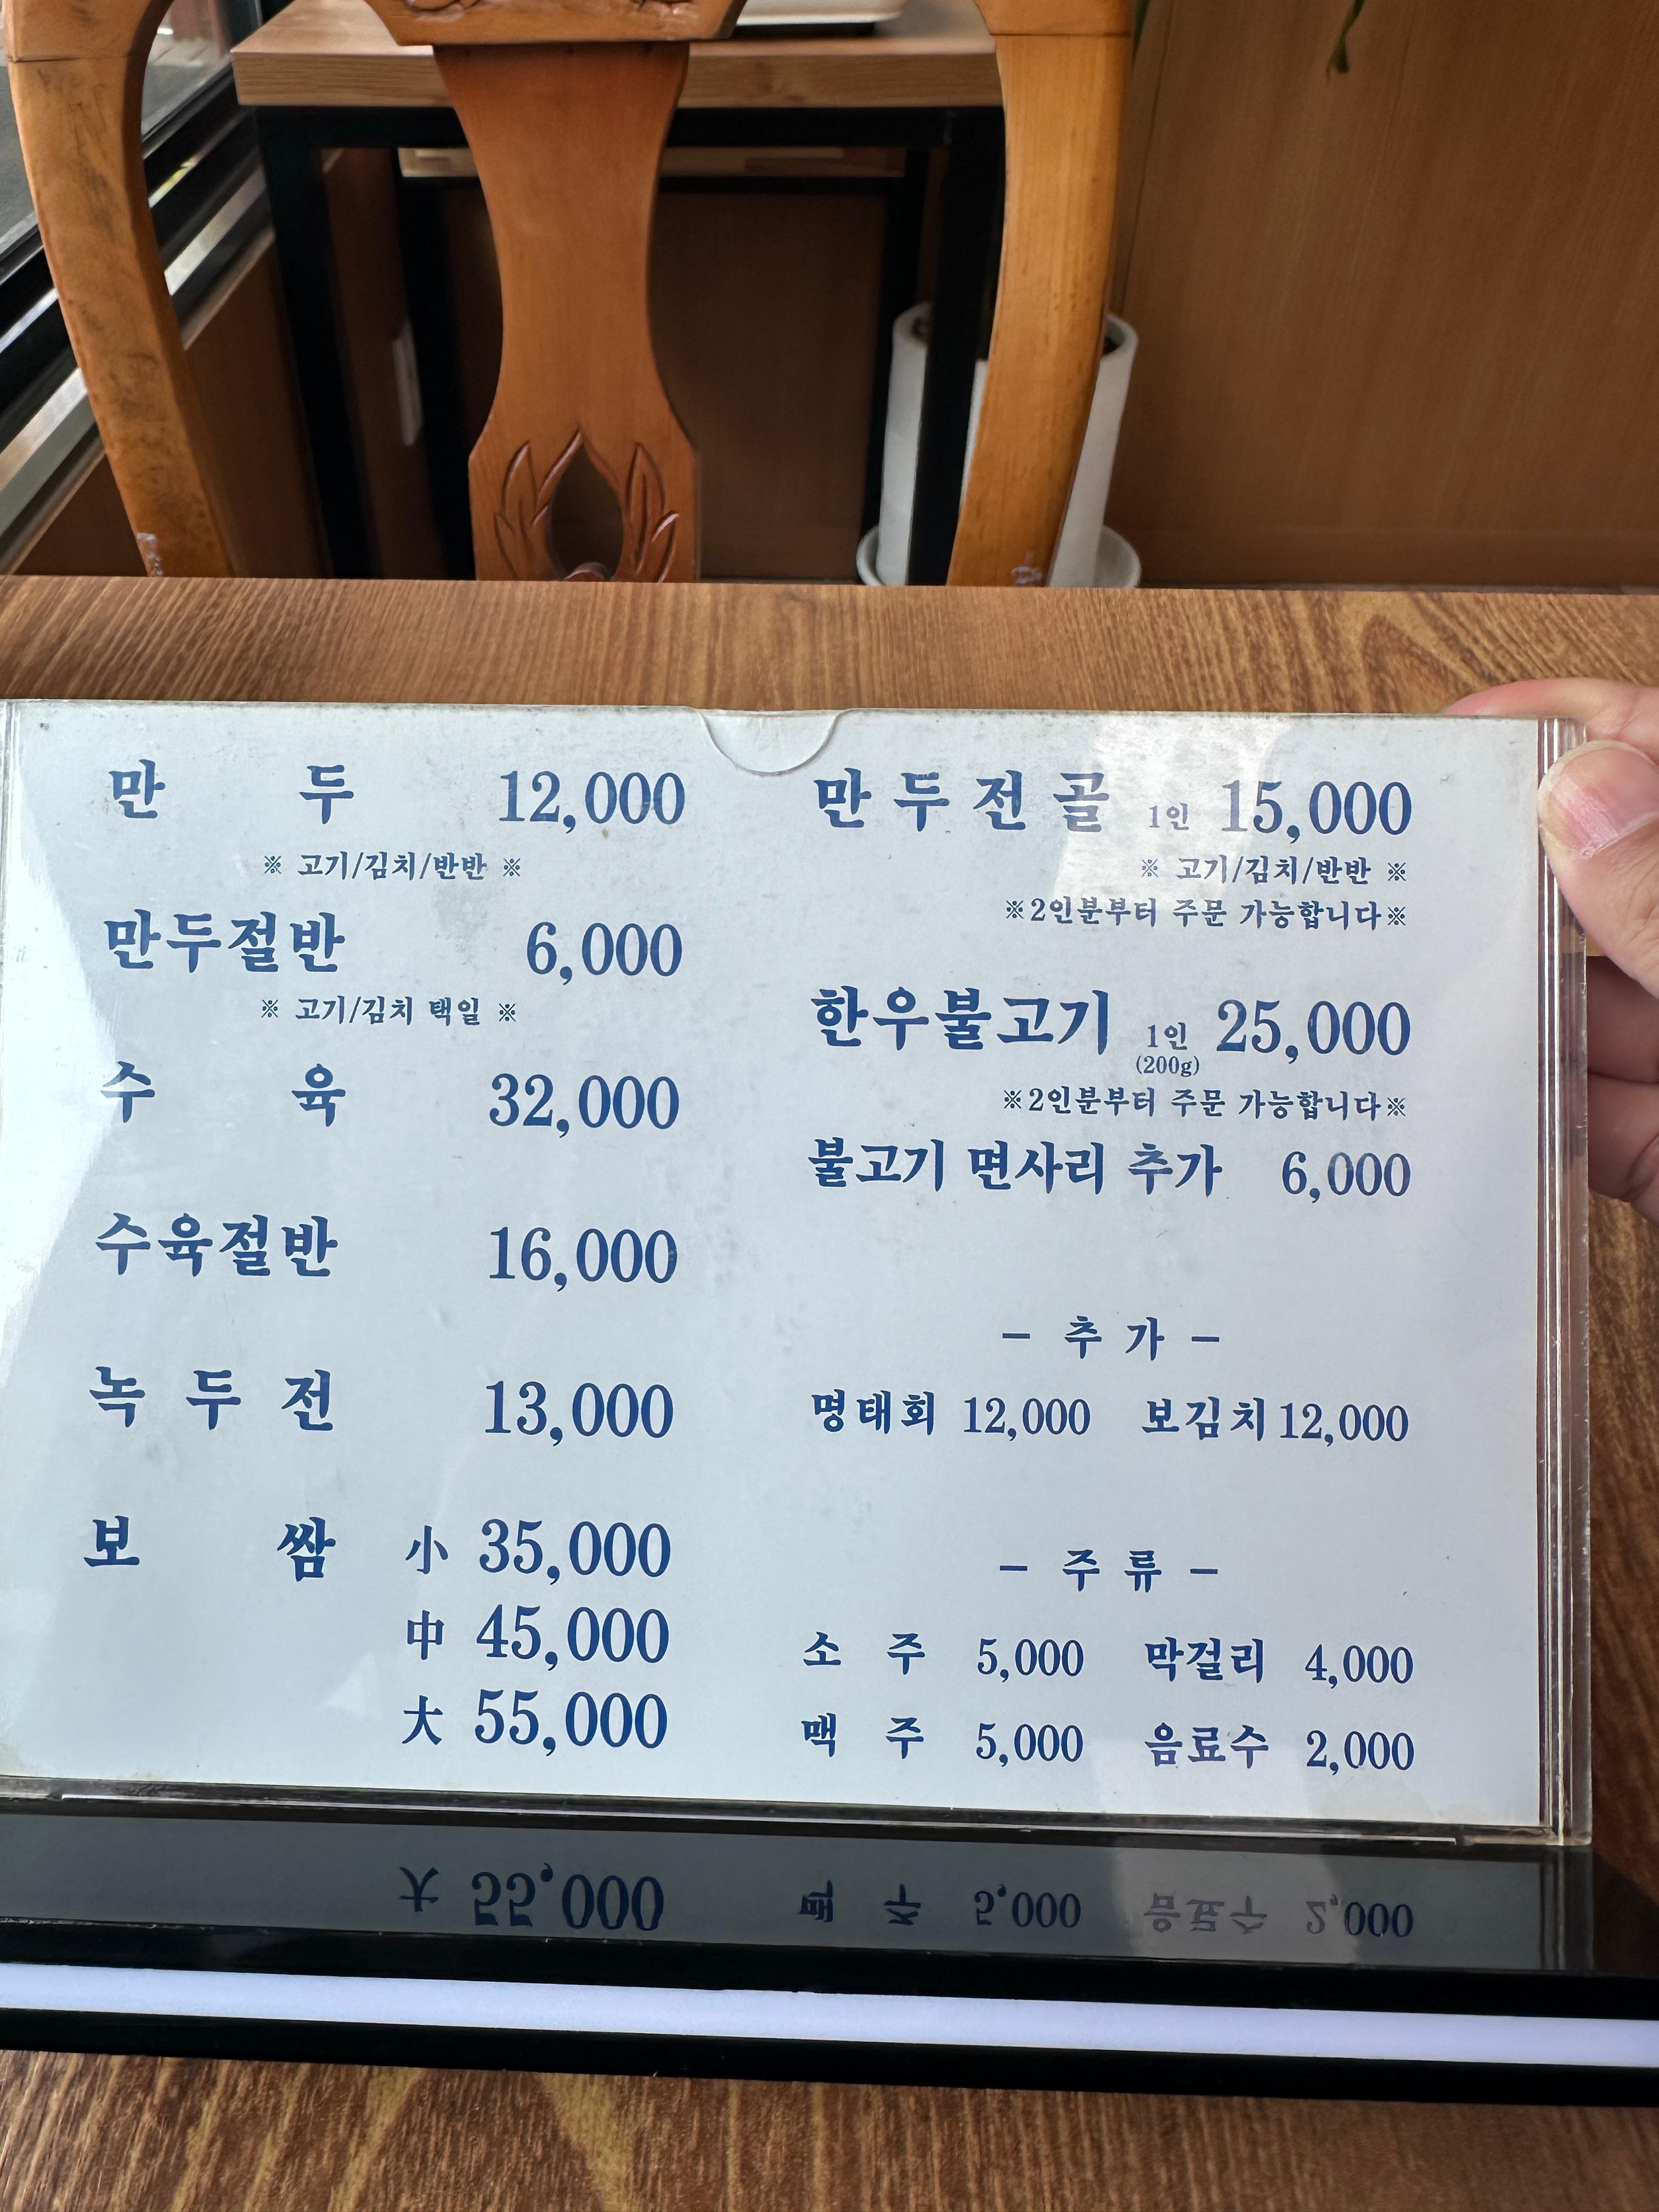 만 두 12,000
※ 고기/김치/반반 ※
만두절반 6,000
※ 고기/김치 택일 ※
수 육 32,000
수육절반 16,000
녹 두 전 13,000
보 쌈 小 35,000
中 45,000
大 55,000
만 두 전 골 1인 15,000
※ 고기/김치/반반 ※
※2인분부터 주문 가능합니다※
한우불고기 1인 25,000
(200g)
※2인분부터 주문 가능합니다※
불고기 면사리 추가 6,000
- 추 가 -
명태회 12,000 보김치 12,000
- 주 류 -
소 주 5,000 막걸리 4,000
맥 주 5,000 음료수 2,000